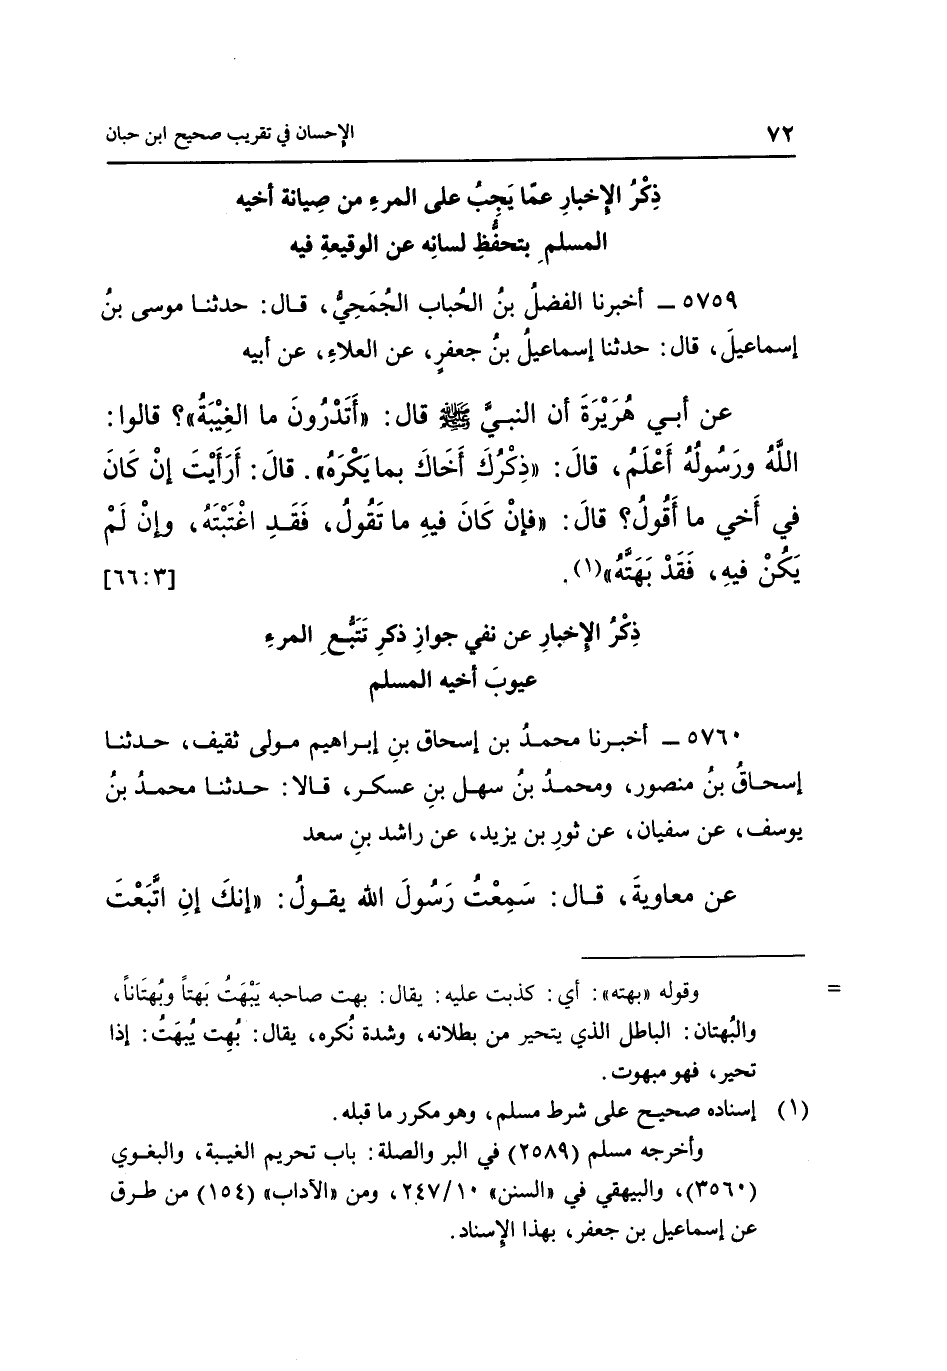 ٧٢ الإحسان في تقريب صحيح ابن حبان
ذِكْرُ الإِخبارِ عمّا يَجِبُ على المرءِ من صِيانة أخيه
المسلمِ بتحفُّظِ لسانِه عن الوقيعةِ فيه
٥٧٥٩ ـ أخبرنا الفضلُ بنُ الحُباب الجُمَحِيُّ، قال: حدثنا موسى بنُ
إسماعيلَ، قال: حدثنا إسماعيلُ بنُ جعفرٍ، عن العلاءِ، عن أبيه
عن أبي هُرَيْرَةَ أن النبيَّ ﷺ قال: «أَتَدْرُونَ ما الغِيْبَةُ»؟ قالوا:
اللَّهُ ورَسُولُهُ أَعْلَمُ، قالَ: «ذِكْرُكَ أَخَاكَ بما يَكْرَهُ». قالَ: أَرَأَيْتَ إنْ كَانَ
في أَخي ما أَقُولُ؟ قالَ: «فإنْ كَانَ فيهِ ما تَقُولُ، فَقَدِ اغْتَبْتَهُ، وإنْ لَمْ
يَكُنْ فيهِ، فَقَدْ بَهَتَّهُ»(١). [٣: ٦٦]
ذِكْرُ الإِخبارِ عن نفي جوازِ ذكرِ تَتَبُّعِ المرءِ
عيوبَ أخيه المسلم
٥٧٦٠ ـ أخبرنا محمدُ بن إسحاق بنِ إبراهيم مولى ثقيف، حدثنا
إسحاقُ بنُ منصور، ومحمدُ بنُ سهل بنِ عسكر، قالا: حدثنا محمدُ بنُ
يوسف، عن سفيان، عن ثورِ بن يزيد، عن راشد بنِ سعد
عن معاويةَ، قال: سَمِعْتُ رَسُولَ الله يقولُ: «إنكَ إنِ اتَّبَعْتَ
= وقوله «بهته»: أي: كذبت عليه: يقال: بهت صاحبه يَبْهَتُ بَهتاً وبُهتَاناً،
والبُهتان: الباطل الذي يتحير من بطلانه، وشدة نُكره، يقال: بُهِت يُبهَتُ: إذا
تحير، فهو مبهوت.
(١) إسناده صحيح على شرط مسلم، وهو مكرر ما قبله.
وأخرجه مسلم (٢٥٨٩) في البر والصلة: باب تحريم الغيبة، والبغوي
(٣٥٦٠)، والبيهقي في «السنن» ٢٤٧/١٠، ومن «الآداب» (١٥٤) من طرق
عن إسماعيل بن جعفر، بهذا الإسناد.